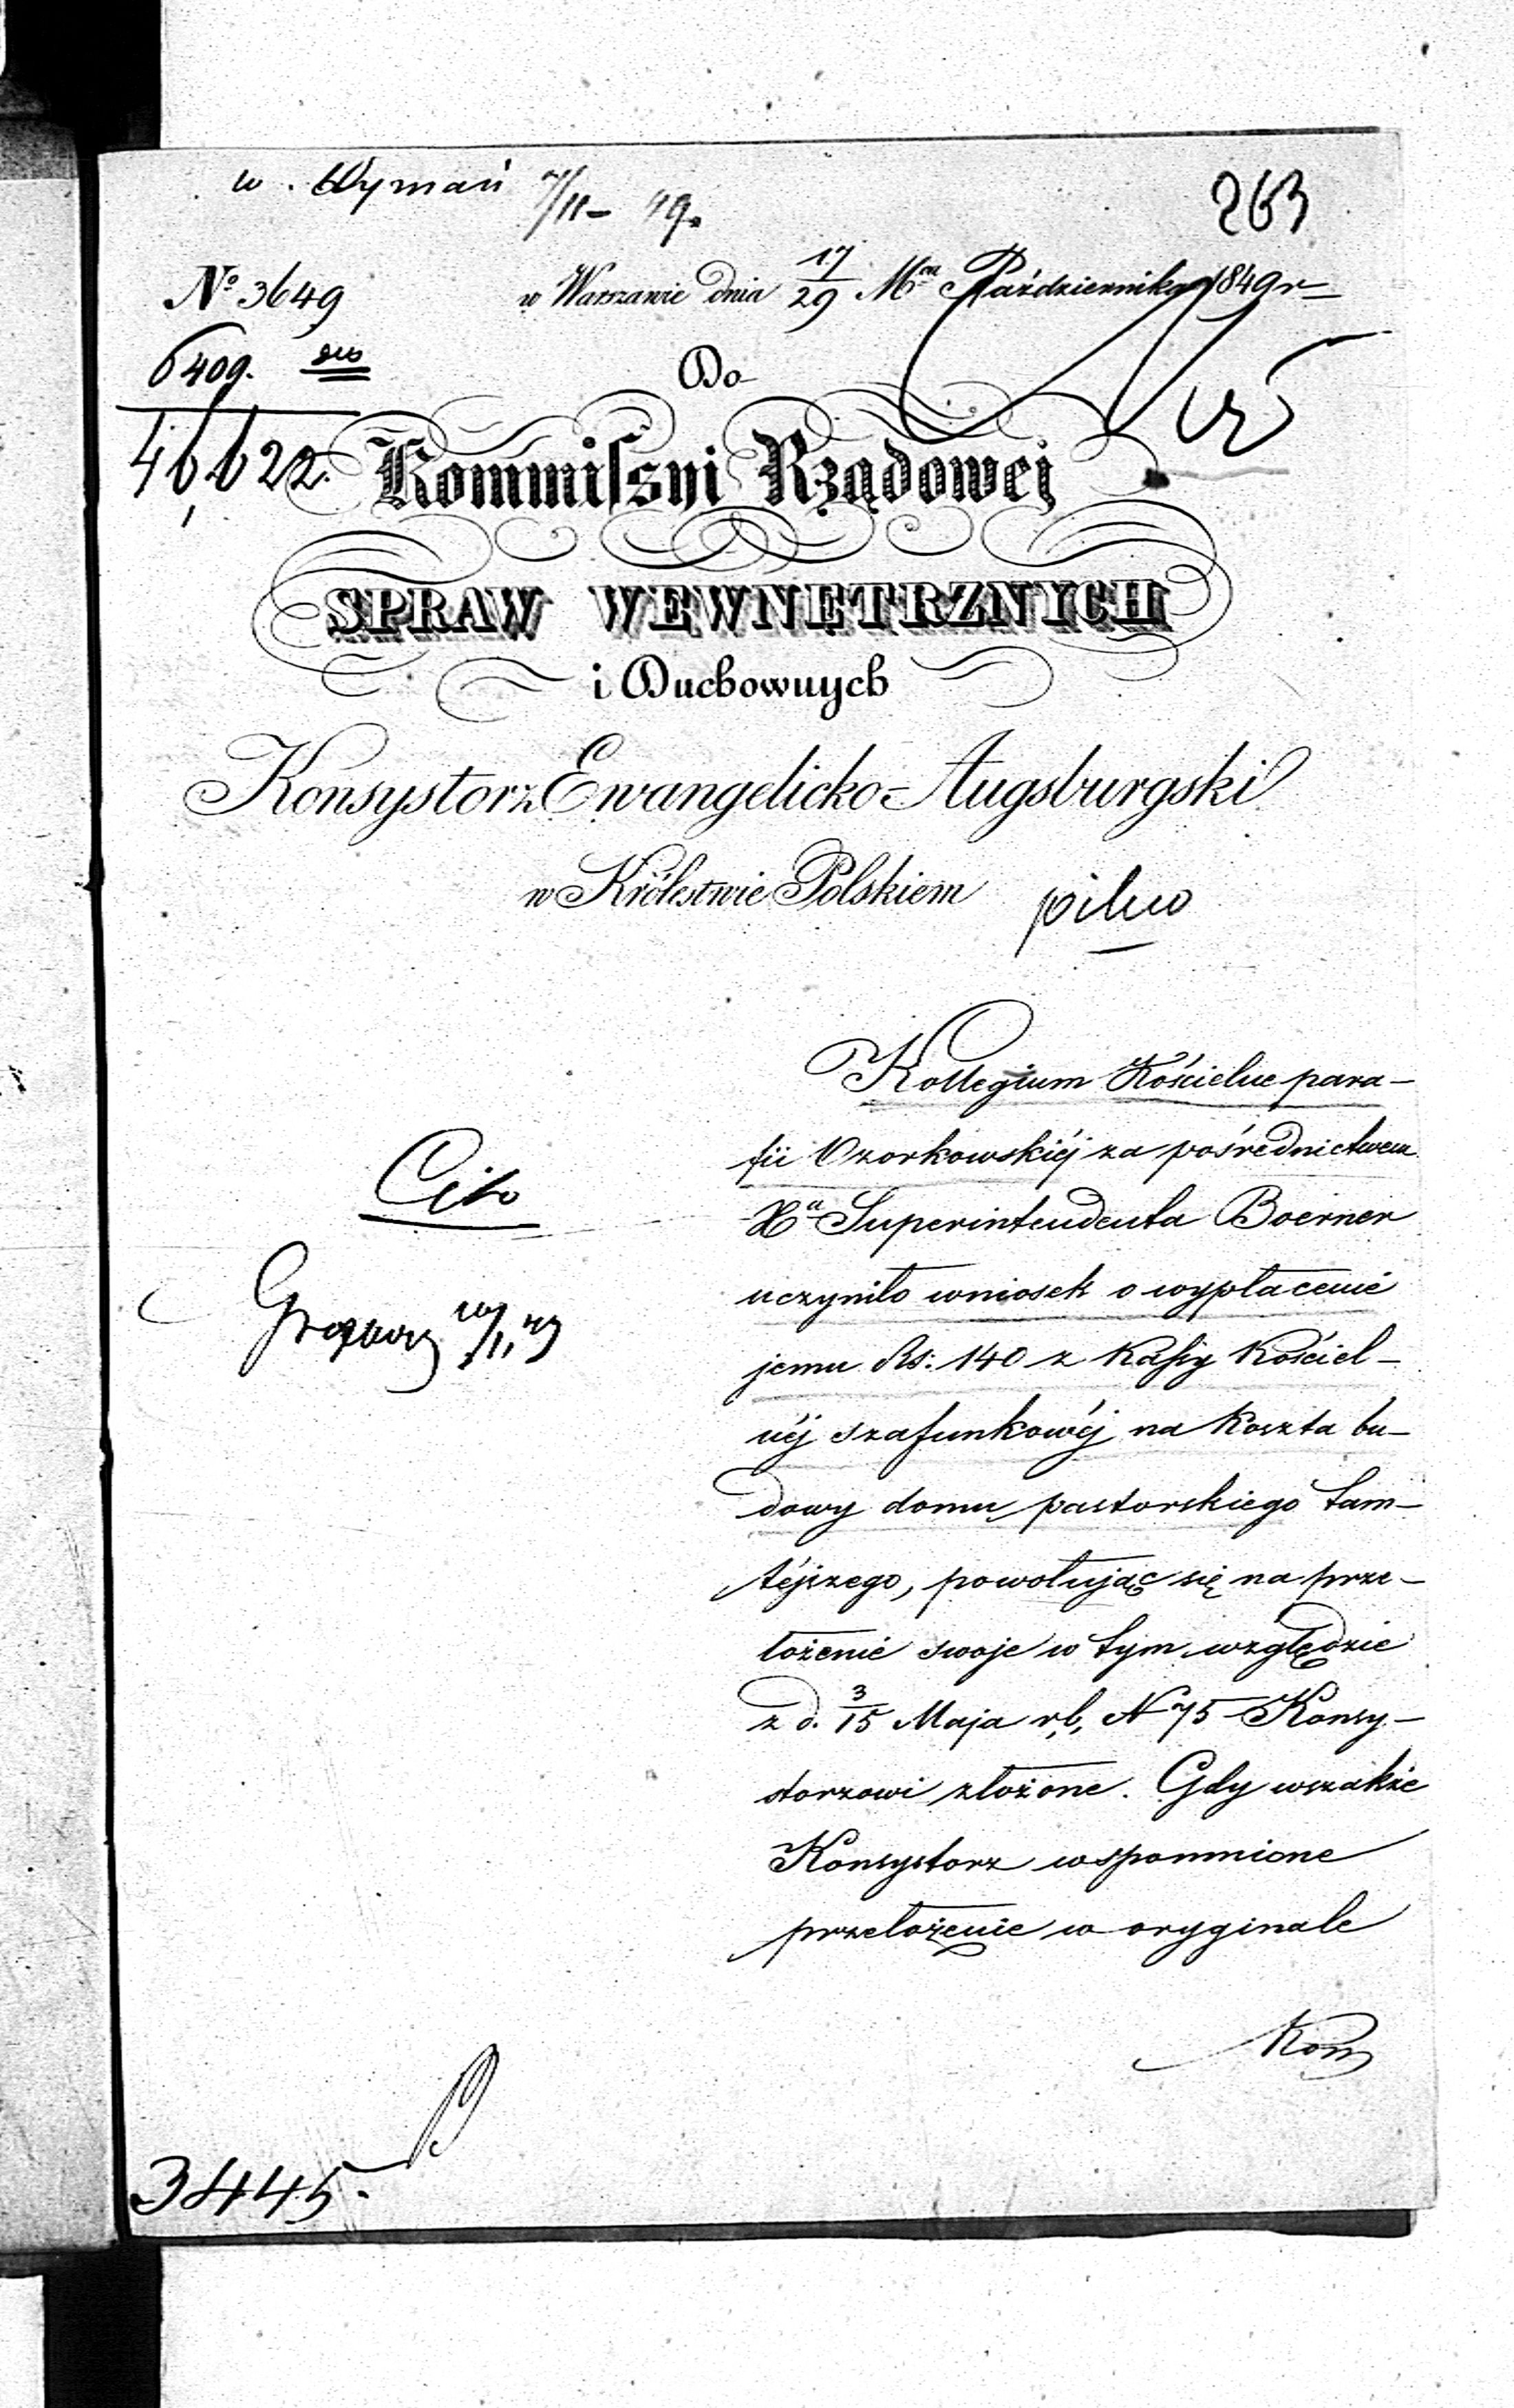 263
7/11 – 49.
№ 3649
w Warszawie dnia 17/29 Mca Października 1849 r
6409.
46622.
Do
Kommiſsyi Rządowej
SPRAW WEWNĘTRZNYCH
i Duchownych
Konsystorz Ewangelicko-Augsburgski
w Królestwie Polskiem
pilno
Kollegium Kościelne para-
fii Ozorkowskiéj za pośrednictwem
Xa Superintendenta Boerner
uczyniło wniosek o wypłacenie
jemu Rs: 140 z Kaſsy Kościel-
néj szafunkowéj na Koszta bu-
dowy domu pastorskiego tam-
téjszego, powołując się na prze-
łożenie swoje w tym względzie
z d. 3/15 Maja rb, N 75 Konsy-
storzowi złożone. Gdy wszakże
Konsystorz wspomnione
przełożenie w oryginale
Kom
Cito
3445.